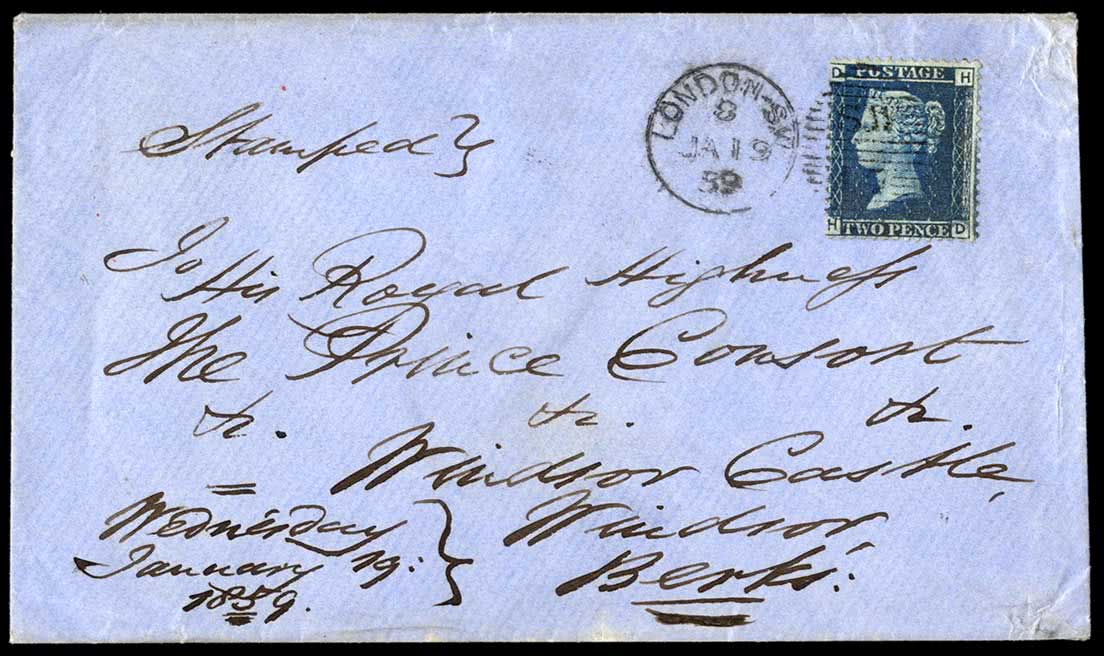 Stamped }
LONDON-SW
8
JA 19
59
D POSTAGE H
H TWO PENCE D
To
His Royal Highness
The Prince Consort
&c. &c. &c.
Windsor Castle,
Windsor,
Berks:
Wednesday
January 19: }
1859.